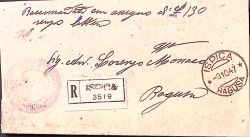 Raccomandata con assegno di L 130
senza lettera
Sig. Avv. Lorenzo Monaco
R ISPICA
3519
Ragusa
ISPICA
-3.10.47
RAGUSA